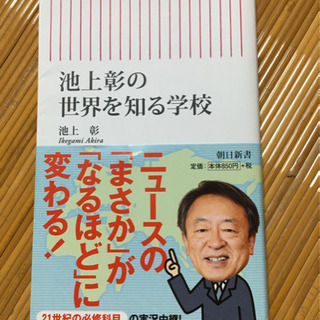 池上彰の
世界を知る学校
池上 彰
Ikegami Akira
朝日新書
定価:本体850円+税
ニュースの
「まさか」が
「なるほど」に
変わる!
21世紀の必修科目の実況中継!